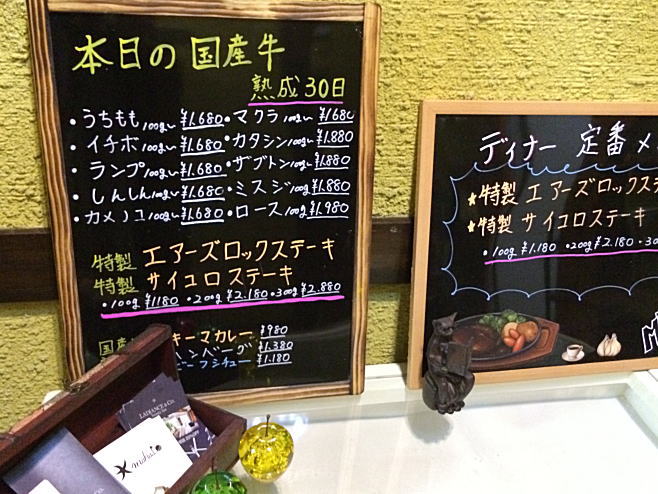 本日の国産牛
熟成30日
・うちもも100g ¥1.680
・イチボ100g ¥1.680
・ランプ100g ¥1.680
・しんしん100g ¥1.680
・カメノコ100g ¥1.680
・マクラ100g ¥1.680
・カタシン100g ¥1.880
・ザブトン100g ¥1.880
・ミスジ100g ¥1.880
・ロース100g ¥1.980
特製 エアーズロックステーキ
特製 サイコロステーキ
・100g ¥1180 ・200g ¥2.180 ・300g ¥2.880
国産
キーマカレー ¥980
ハンバーグ ¥1.380
ビーフシチュー ¥1.180
ディナー 定番メ
★特製 エアーズロックス
★特製 サイコロステーキ
・100g ¥1.180 ・200g ¥2.180 ・30